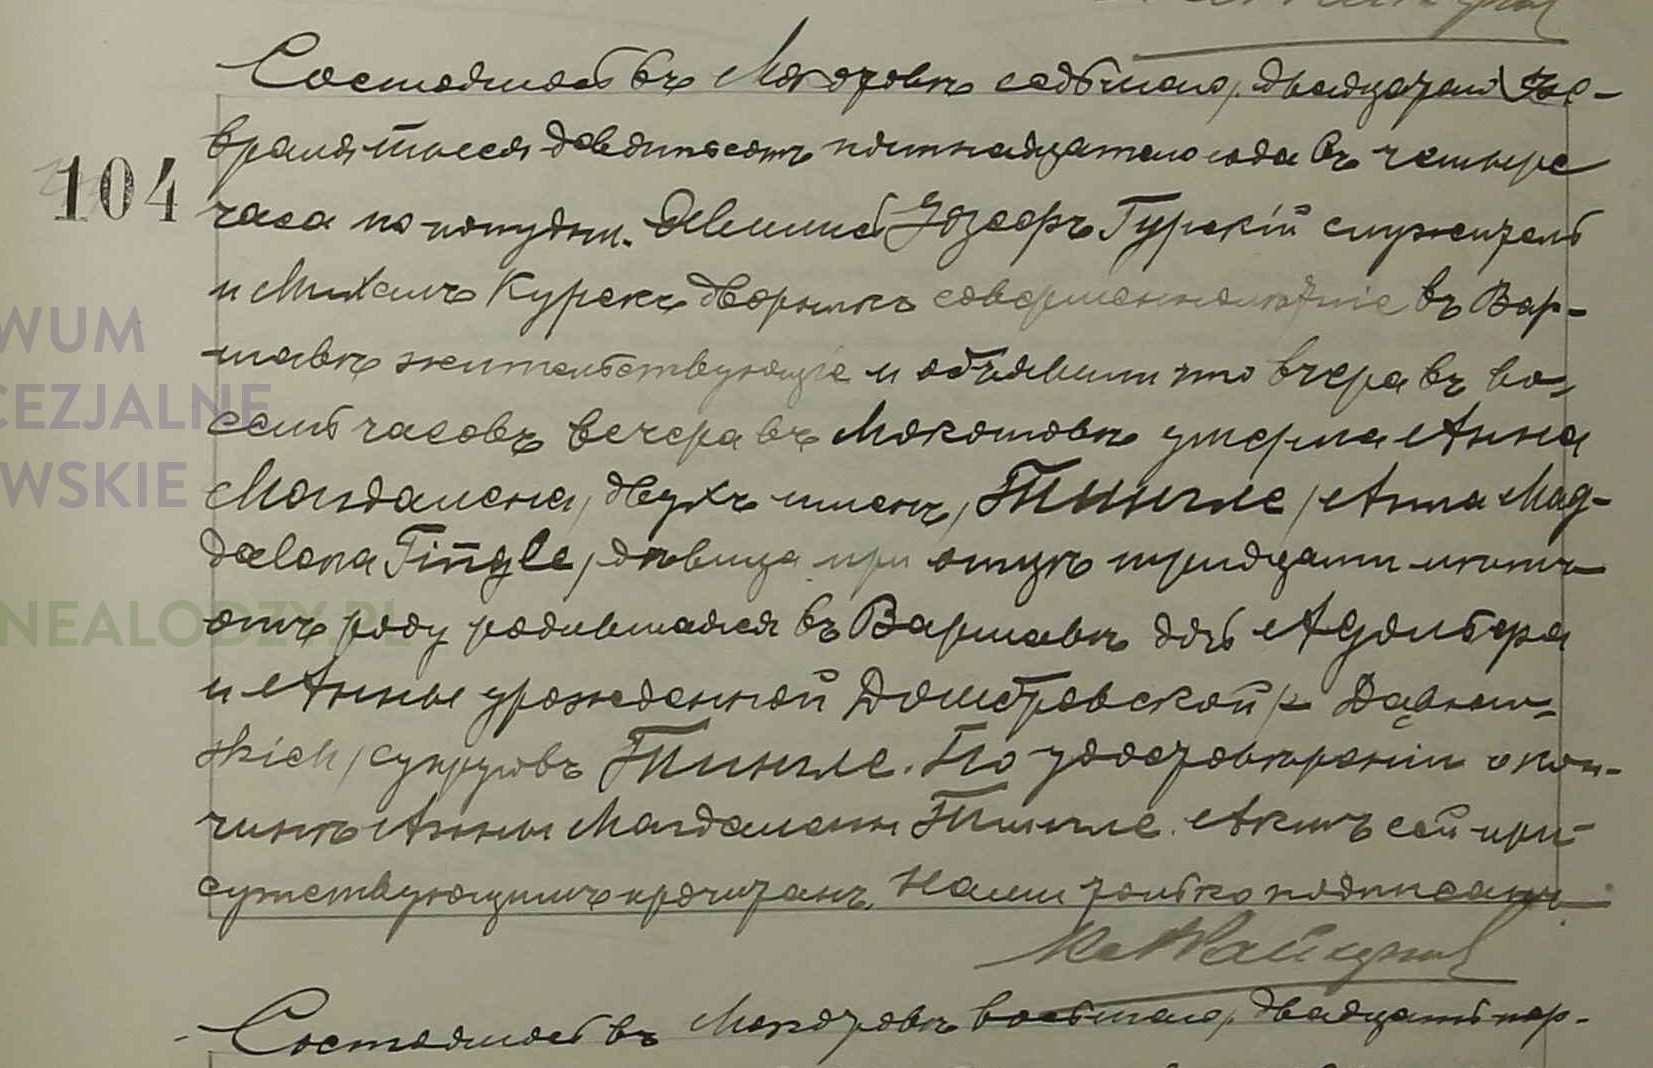 Состоялось въ Мокотовѣ седьмаго /двадцатаго/ Фе-
враля тысяча девятьсотъ пятнадцатаго года въ четыре
104
часа по полудни. Явились Іозефъ Гурскій служитель
и Михаилъ Курекъ дворникъ совершеннолѣтніе въ Вар-
шавѣ жительствующіе и объявили что вчера въ во-
WUM
семь часовъ вечера въ Мокотовѣ умерла Анна
CEZJALNE
Магдалена, двухъ именъ, Тингле /Anna Mag-
WSKIE
dalena Tingle/ дѣвица при отцѣ тридцати лѣтъ
отъ роду родившаяся въ Варшавѣ дочь Адольфа
NEALODZY.PL
и Анны урожденной Домбровской /z Dąbrow-
skich/ супруговъ Тингле. По удостовѣреніи о кон-
чинѣ Анны Магдалены Тингле. Актъ сей при-
сутствующимъ прочитанъ, Нами только подписанъ
Состоялось въ Мокотовѣ восьмаго /двадцать пер-